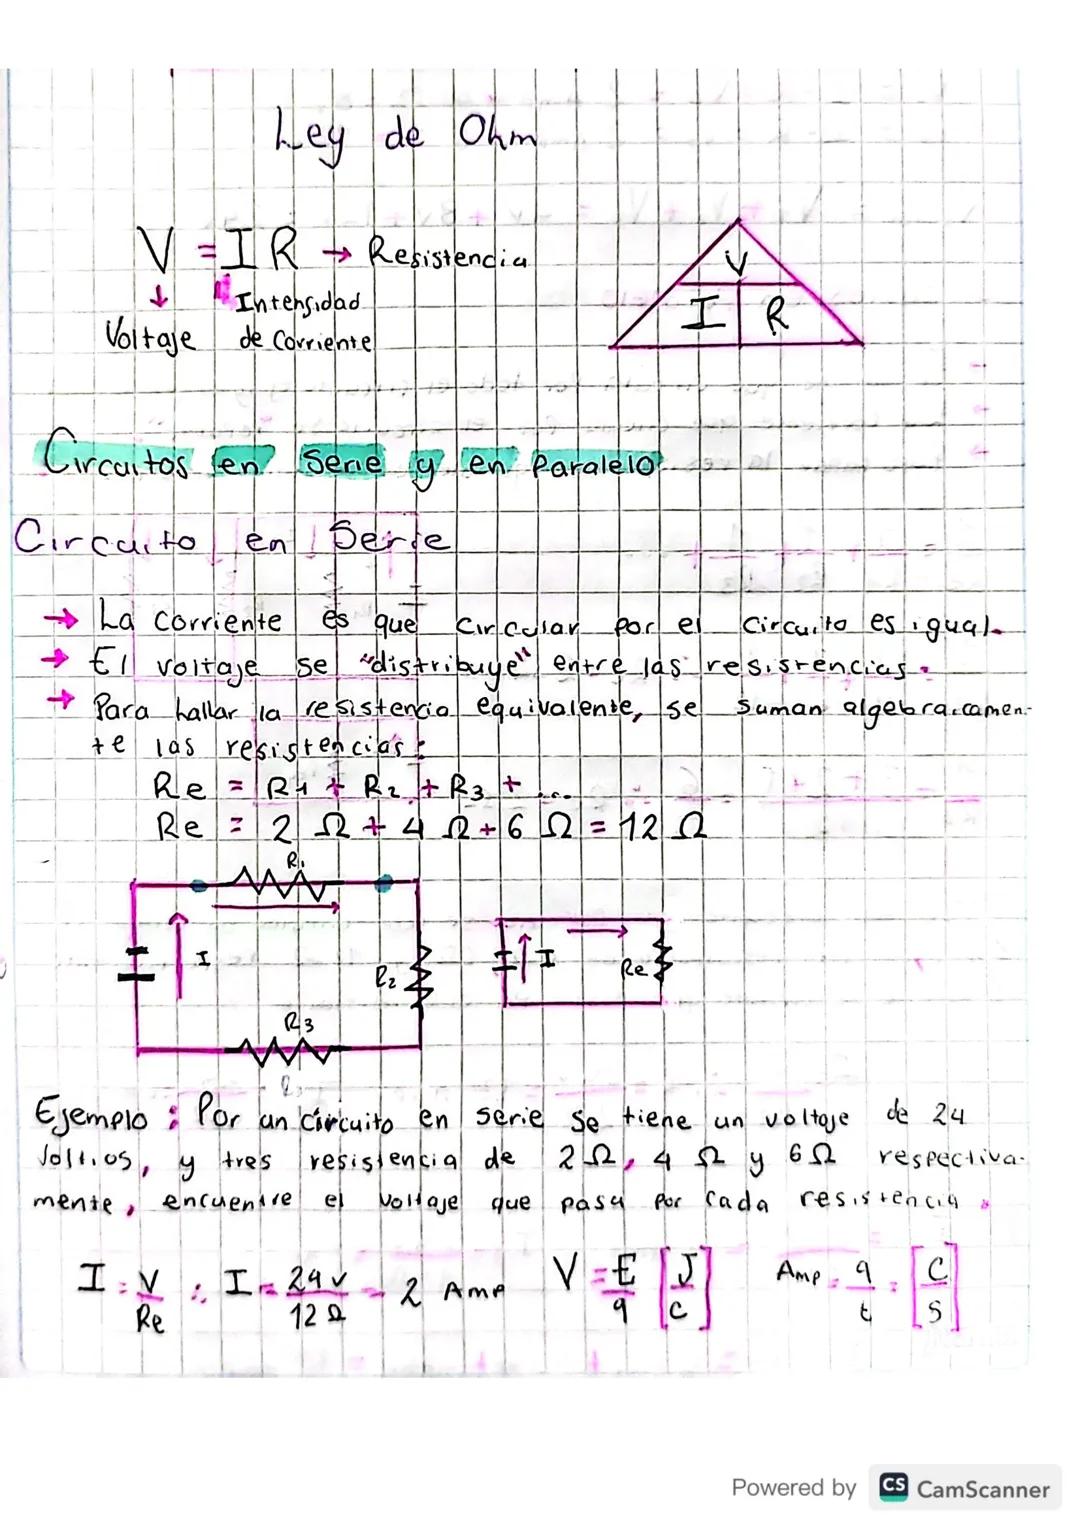 Ley de Ohm
V = I R → Resistencia
↓ Intensidad
Voltaje de Corriente
V
I R
Circuitos en Serie y en Paralelo
Circuito en Serie
→ La corriente es que circular por el circuito es igual.
→ El voltaje se "distribuye" entre las resistencias.
→ Para hallar la resistencia equivalente, se suman algebraicamen-
te las resistencias:
Re = R1 + R2 + R3 + ...
Re = 2 Ω + 4 Ω + 6 Ω = 12 Ω
R1
I
R2
R3
I
Re
Ejemplo: Por un circuito en serie se tiene un voltaje de 24
Voltios, y tres resistencia de 2Ω, 4 Ω y 6Ω respectiva-
mente, encuentre el voltaje que pasa por cada resistencia.
I = V/Re ∴ I = 24v/12Ω = 2 Amp V = E/q [J/C] Amp = q/t = [C/S]
Powered by CS CamScanner